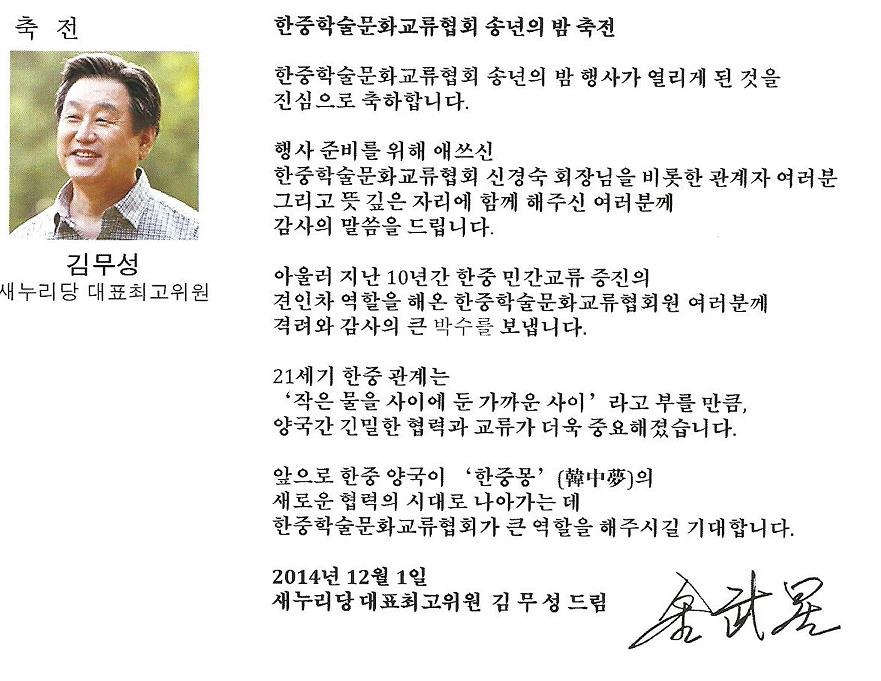 축 전
김무성
새누리당 대표최고위원
한중학술문화교류협회 송년의 밤 축전
한중학술문화교류협회 송년의 밤 행사가 열리게 된 것을
진심으로 축하합니다.
행사 준비를 위해 애쓰신
한중학술문화교류협회 신경숙 회장님을 비롯한 관계자 여러분
그리고 뜻 깊은 자리에 함께 해주신 여러분께
감사의 말씀을 드립니다.
아울러 지난 10년간 한중 민간교류 증진의
견인차 역할을 해온 한중학술문화교류협회원 여러분께
격려와 감사의 큰 박수를 보냅니다.
21세기 한중 관계는
‘작은 물을 사이에 둔 가까운 사이’ 라고 부를 만큼,
양국간 긴밀한 협력과 교류가 더욱 중요해졌습니다.
앞으로 한중 양국이 ‘한중몽’ (韓中夢)의
새로운 협력의 시대로 나아가는 데
한중학술문화교류협회가 큰 역할을 해주시길 기대합니다.
2014년 12월 1일
새누리당 대표최고위원 김 무 성 드림
金武星